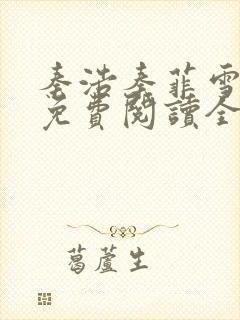 秦浩秦菲雪
免費閱讀全
葛蘆生